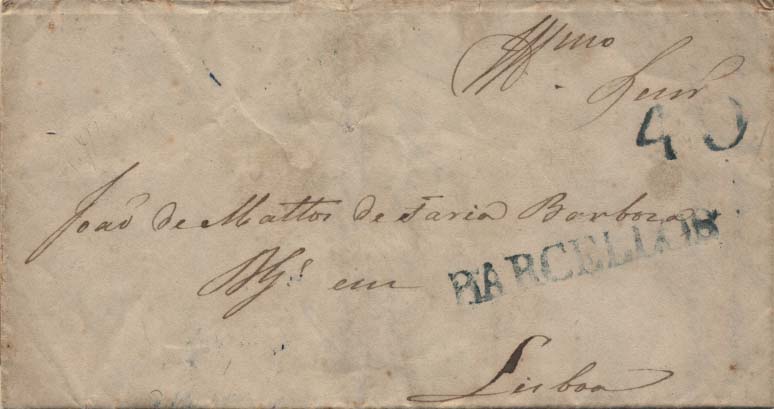 Illmo
Senr
40
João de Mattos de Faria Barboza
em
BARCELLOS
Lisboa